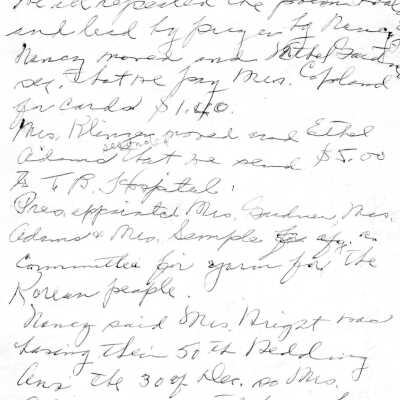 repeated the
and lead by prayer by Nancy
Nancy moved and Ethel
sec. that we pay Mrs. Copeland
for cards $1.40.
Mrs. Klinger moved and Ethel
Adams seconded that we send $5.00
to T B. Hospital.
Pres. appointed Mrs. Gardner, Mrs.
Adams & Mrs. Semple as a
Committee for yarn for the
Korean people.
Nancy said Mrs. Bright was
having their 50th Wedding
Ann the 30 of Dec. so Mrs.